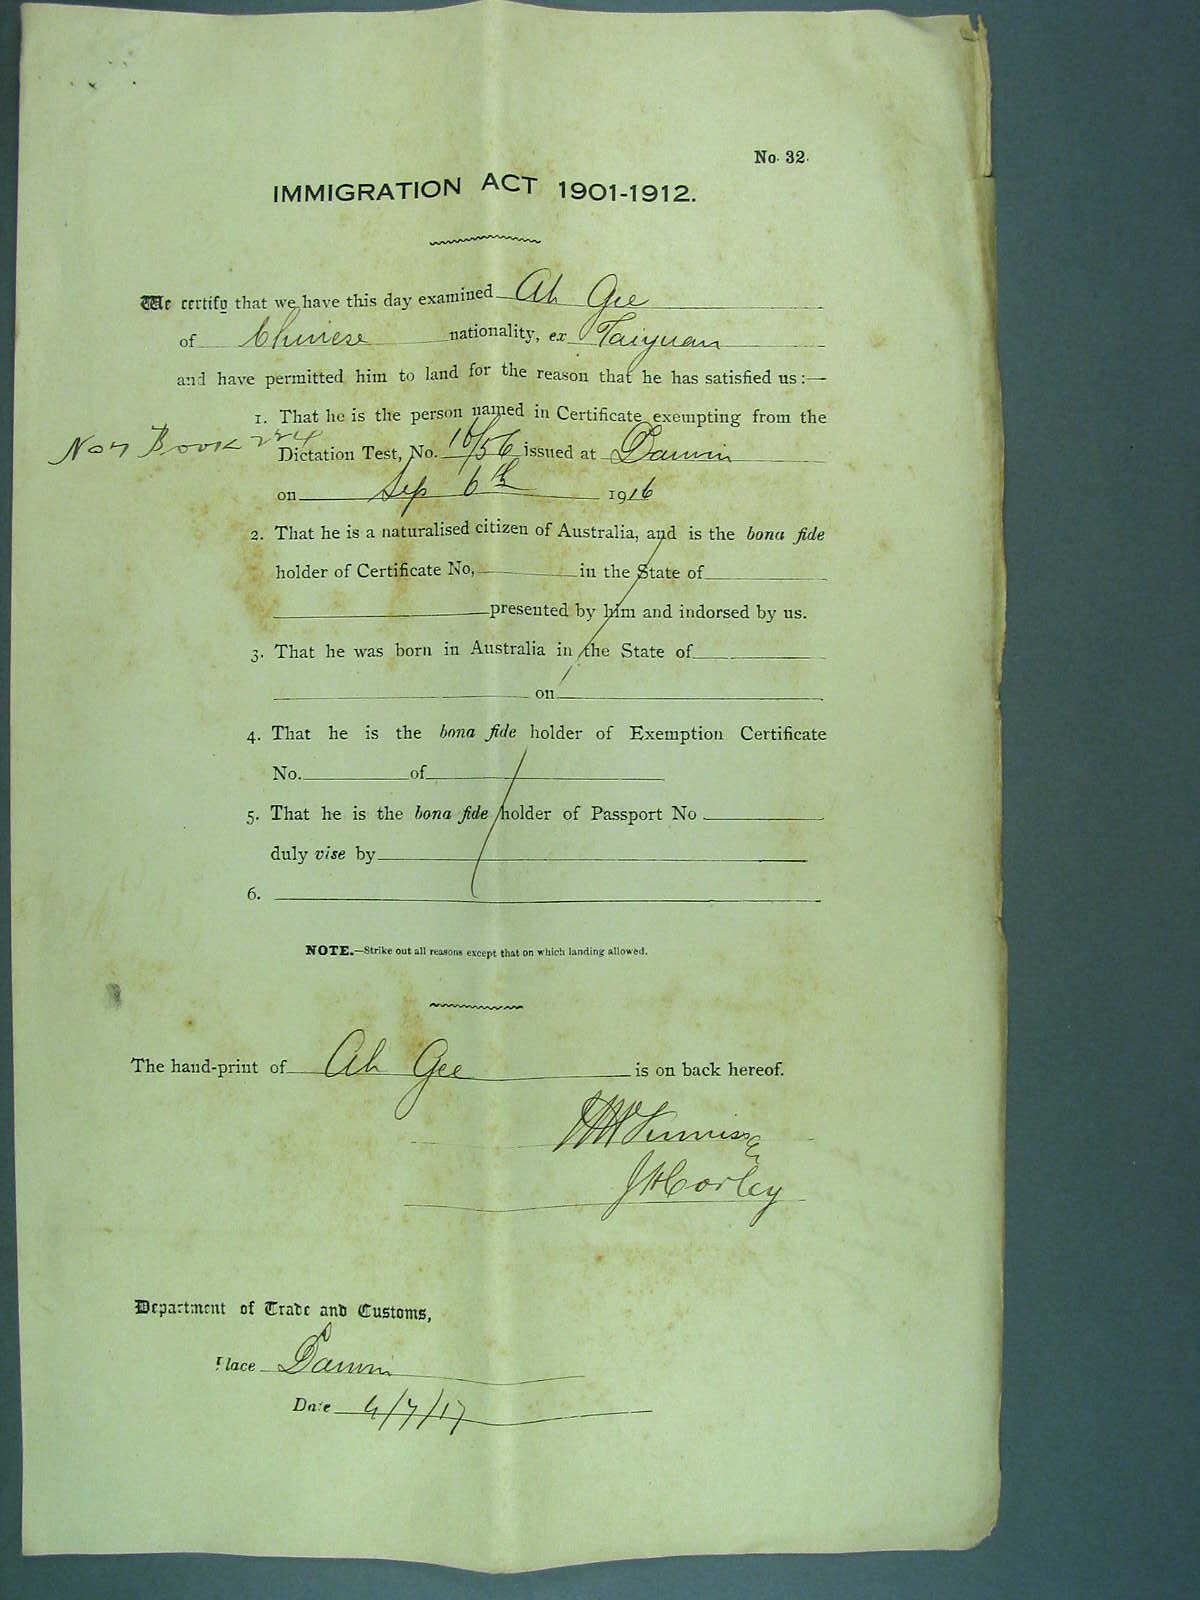 No. 32.
IMMIGRATION ACT 1901-1912.
We certify that we have this day examined Ah Gee
of Chinese nationality, ex Taiyuan
and have permitted him to land for the reason that he has satisfied us:—
1. That he is the person named in Certificate exempting from the
No 7 Book 224
Dictation Test, No. 16/56 issued at Darwin
on Sep 6th 1916
2. That he is a naturalised citizen of Australia, and is the bona fide
holder of Certificate No, in the State of
presented by him and indorsed by us.
3. That he was born in Australia in the State of
on
4. That he is the bona fide holder of Exemption Certificate
No. of
5. That he is the bona fide holder of Passport No
duly vise by
6.
NOTE.—Strike out all reasons except that on which landing allowed.
The hand-print of Ah Gee is on back hereof.
JHCorley
Department of Trade and Customs,
Place Darwin
Date 4/7/17